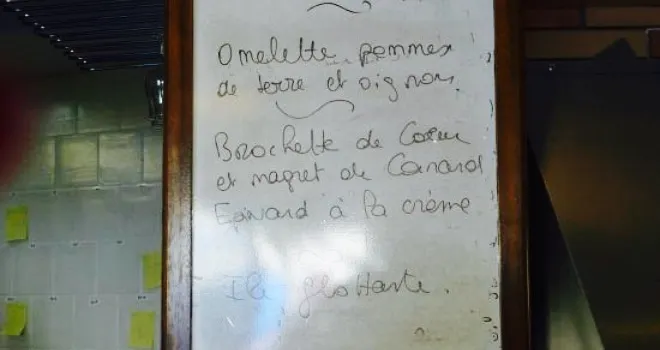 Omelette pommes
de terre et oignons.
Brochette de Coeur
et magret de Canard
Epinard à la crème
Ile flottante.